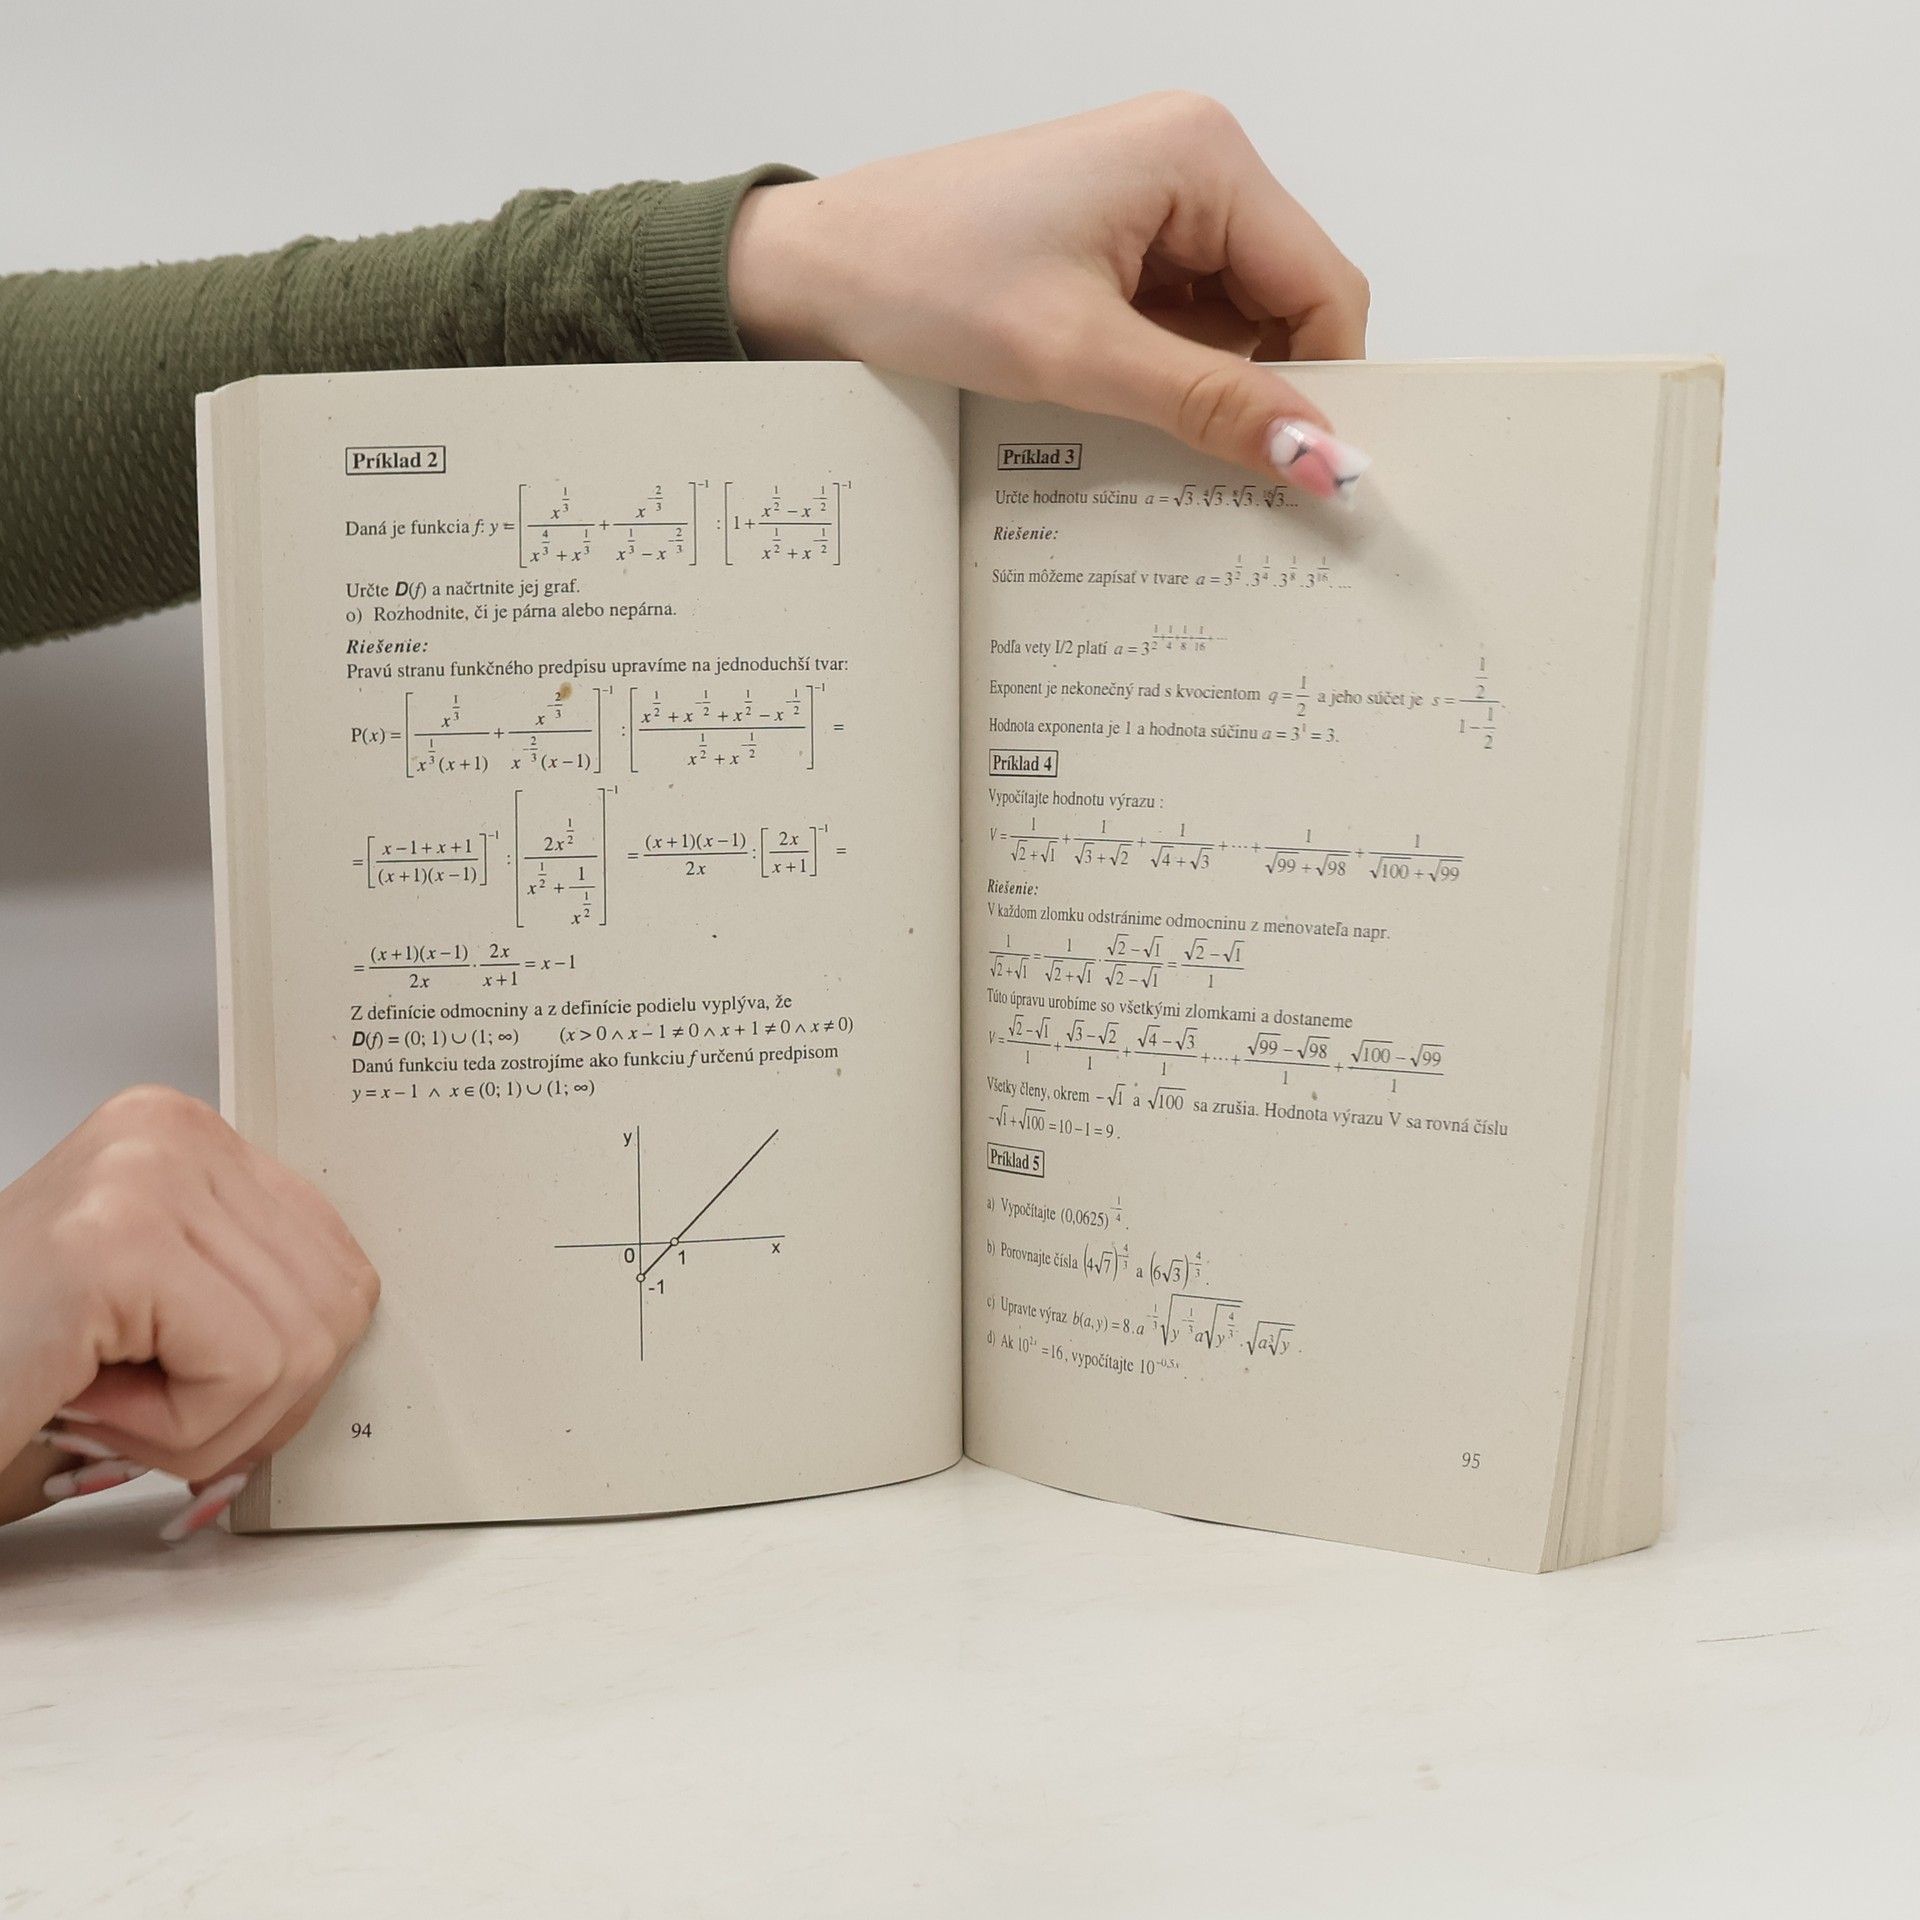 Príklad 2
Daná je funkcia f: y = [x^(1/3)/(x^(4/3) + x^(1/3)) + x^(-2/3)/(x^(1/3) − x^(-2/3))]^(-1) : [1 + (x^(1/2) − x^(-1/2))/(x^(1/2) + x^(-1/2))]^(-1)
Určte D(f) a načrtnite jej graf.
o) Rozhodnite, či je párna alebo nepárna.
Riešenie:
Pravú stranu funkčného predpisu upravíme na jednoduchší tvar:
P(x) = [x^(1/3)/(x^(1/3)(x+1)) + x^(-2/3)/(x^(-2/3)(x−1))]^(-1) : [(x^(1/2) + x^(-1/2) + x^(1/2) − x^(-1/2))/(x^(1/2) + x^(-1/2))]^(-1) =
= [(x−1+x+1)/((x+1)(x−1))]^(-1) : [2x^(1/2)/(x^(1/2) + 1/x^(1/2))]^(-1) = (x+1)(x−1)/2x : [2x/(x+1)]^(-1) =
= (x+1)(x−1)/2x . 2x/(x+1) = x−1
Z definície odmocniny a z definície podielu vyplýva, že
D(f) = (0; 1) ∪ (1; ∞) (x > 0 ∧ x − 1 ≠ 0 ∧ x + 1 ≠ 0 ∧ x ≠ 0)
Danú funkciu teda zostrojíme ako funkciu f určenú predpisom
y = x − 1 ∧ x ∈ (0; 1) ∪ (1; ∞)
y
0 1 x
-1
94
Príklad 3
Určte hodnotu súčinu a = √3 . ∜3 . ⁸√3 . ¹⁶√3...
Riešenie:
Súčin môžeme zapísať v tvare a = 3^(1/2) . 3^(1/4) . 3^(1/8) . 3^(1/16). ...
Podľa vety I/2 platí a = 3^(1/2+1/4+1/8+1/16+...)
Exponent je nekonečný rad s kvocientom q = 1/2 a jeho súčet je s = (1/2)/(1−1/2).
Hodnota exponenta je 1 a hodnota súčinu a = 3¹ = 3.
Príklad 4
Vypočítajte hodnotu výrazu :
V = 1/(√2+√1) + 1/(√3+√2) + 1/(√4+√3) + ··· + 1/(√99+√98) + 1/(√100+√99)
Riešenie:
V každom zlomku odstránime odmocninu z menovateľa napr.
1/(√2+√1) = 1/(√2+√1) . (√2−√1)/(√2−√1) = (√2−√1)/1
Túto úpravu urobíme so všetkými zlomkami a dostaneme
V = (√2−√1)/1 + (√3−√2)/1 + (√4−√3)/1 + ··· + (√99−√98)/1 + (√100−√99)/1
Všetky členy, okrem −√1 a √100 sa zrušia. Hodnota výrazu V sa rovná číslu
−√1+√100 = 10−1 = 9.
Príklad 5
a) Vypočítajte (0,0625)^(-1/4).
b) Porovnajte čísla (4√7)^(-4/3) a (6√3)^(-4/3).
c) Upravte výraz b(a,y) = 8.a^(-1/3) √(y^(-1/3) a√(y^(4/3))) . √(a∛y) .
d) Ak 10^(2x) = 16, vypočítajte 10^(−0,5x).
95